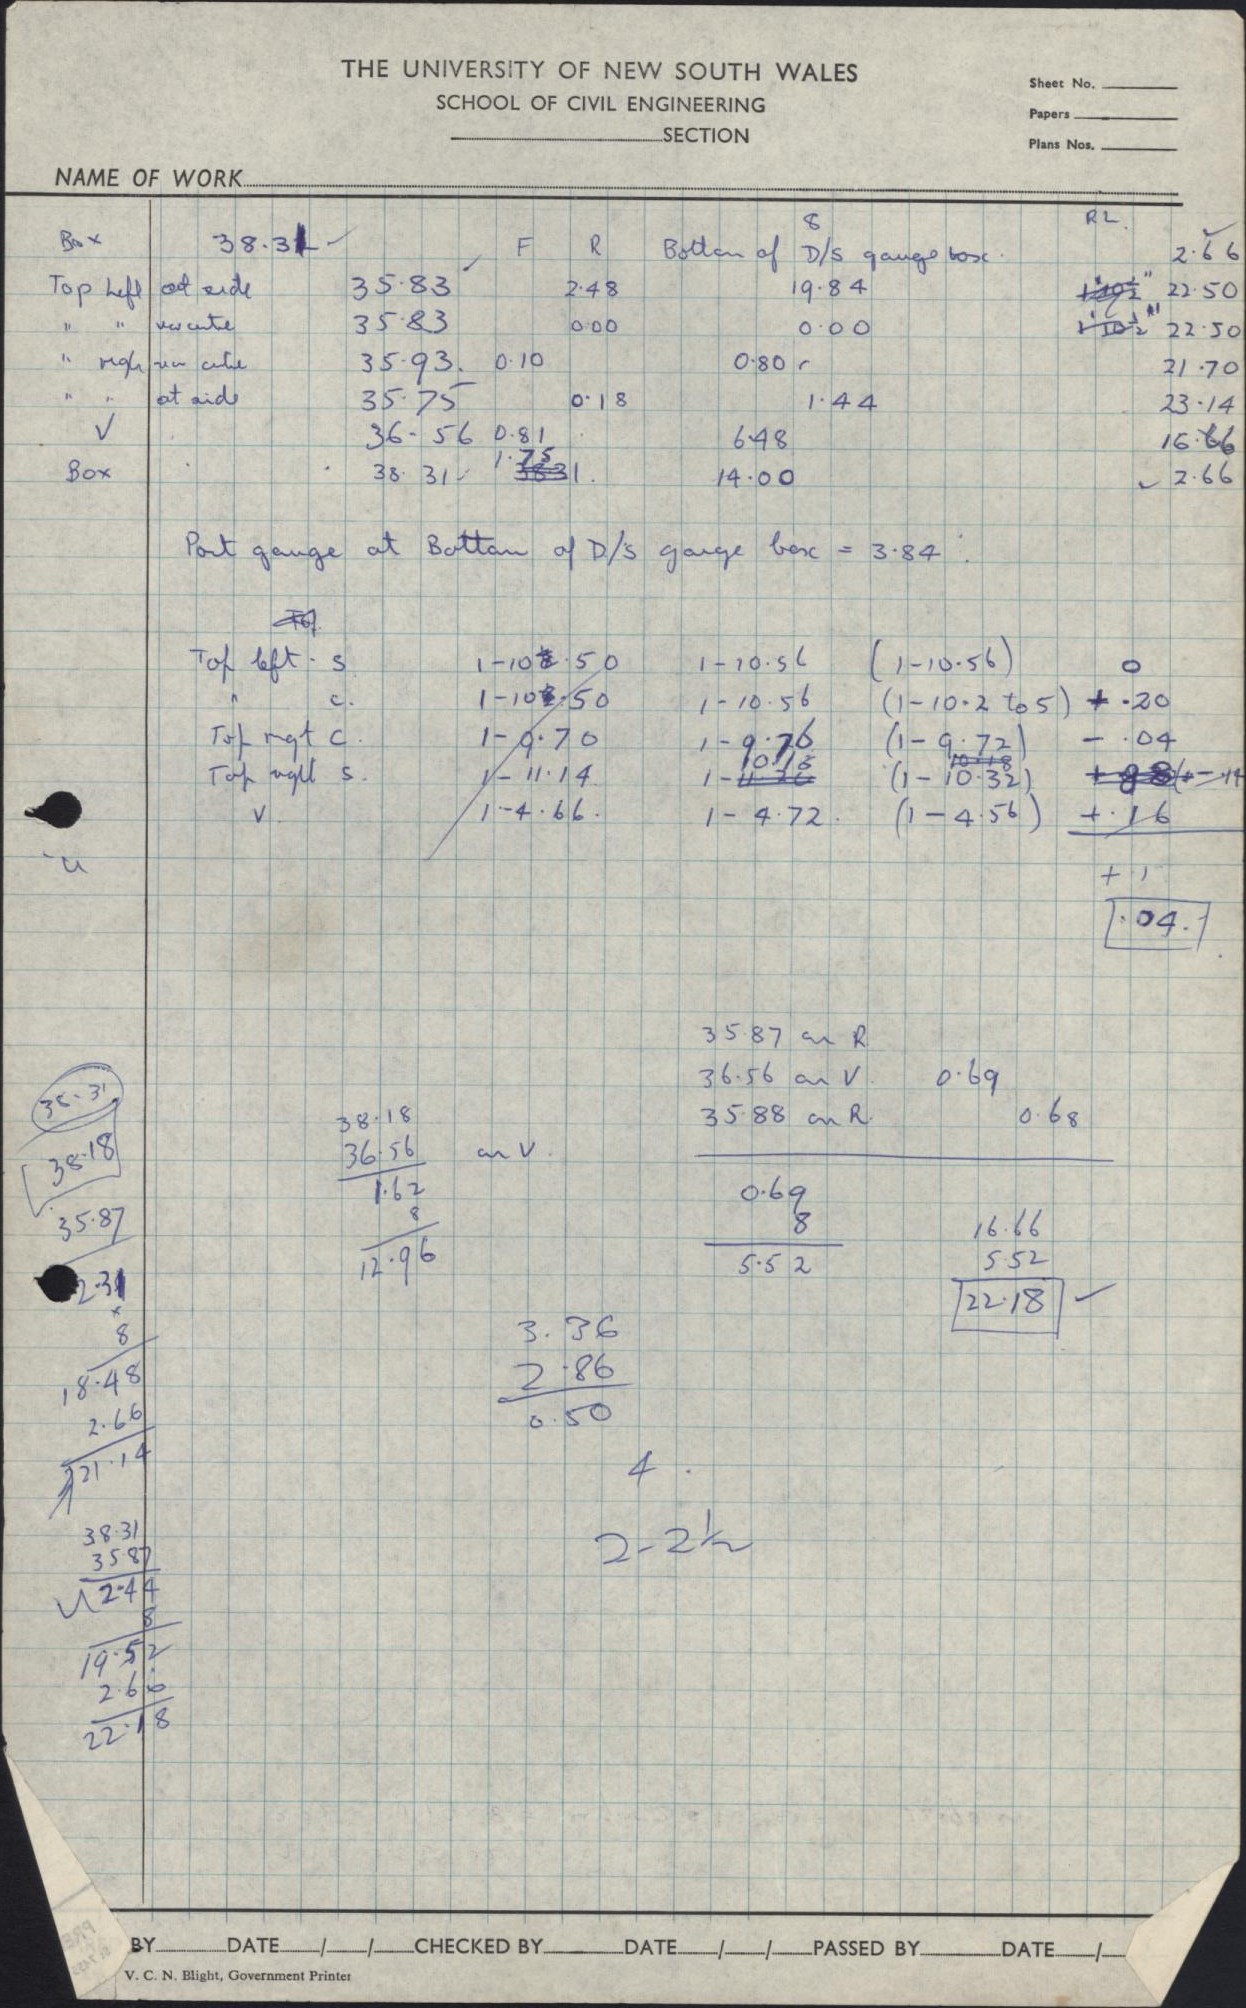 THE UNIVERSITY OF NEW SOUTH WALES
SCHOOL OF CIVIL ENGINEERING
SECTION
Sheet No.
Papers
Plans Nos.
NAME OF WORK
8 RL.
Box 38.31 ✓ F R Bottom of D/S gauge box. 2.66
Top left at side 35.83 ✓ 2.48 19.84 22.50
" " near centre 35.83 0.00 0.00 22.50
" right near centre 35.93. 0.10 0.80 21.70
" " at side 35.75 0.18 1.44 23.14
V 36.56 0.81 6.48 16.66
Box 38.31 ✓ 1.75 3831. 14.00 ✓ 2.66
Port gauge at Bottom of D/S gauge box = 3.84
Top
Top left. S 1-10.50 1-10.56 (1-10.56) 0
" C. 1-10.50 1-10.56 (1-10.2 to 5) + .20
Top right C. 1-9.70 1-9.76 (1-9.72) - .04
10.18 10.18
Top right S. 1-11.14 1- (1-10.32) - .14
V. 1-4.66. 1-4.72. (1-4.56) + .16
+ 1
.04.
35.87 on R
36.56 on V. 0.69
35.88 on R. 0.68
0.69
8
5.52
16.66
5.52
22.18 ✓
38.18
36.56 on V.
1.62
8
12.96
3.36
2.86
0.50
4.
2-2½
38.31
38.18
35.87
2.31
×
8
18.48
2.66
21.14
38.31
35.87
2.44
8
19.52
2.66
22.18
BY DATE / / CHECKED BY DATE / / PASSED BY DATE /
V. C. N. Blight, Government Printer